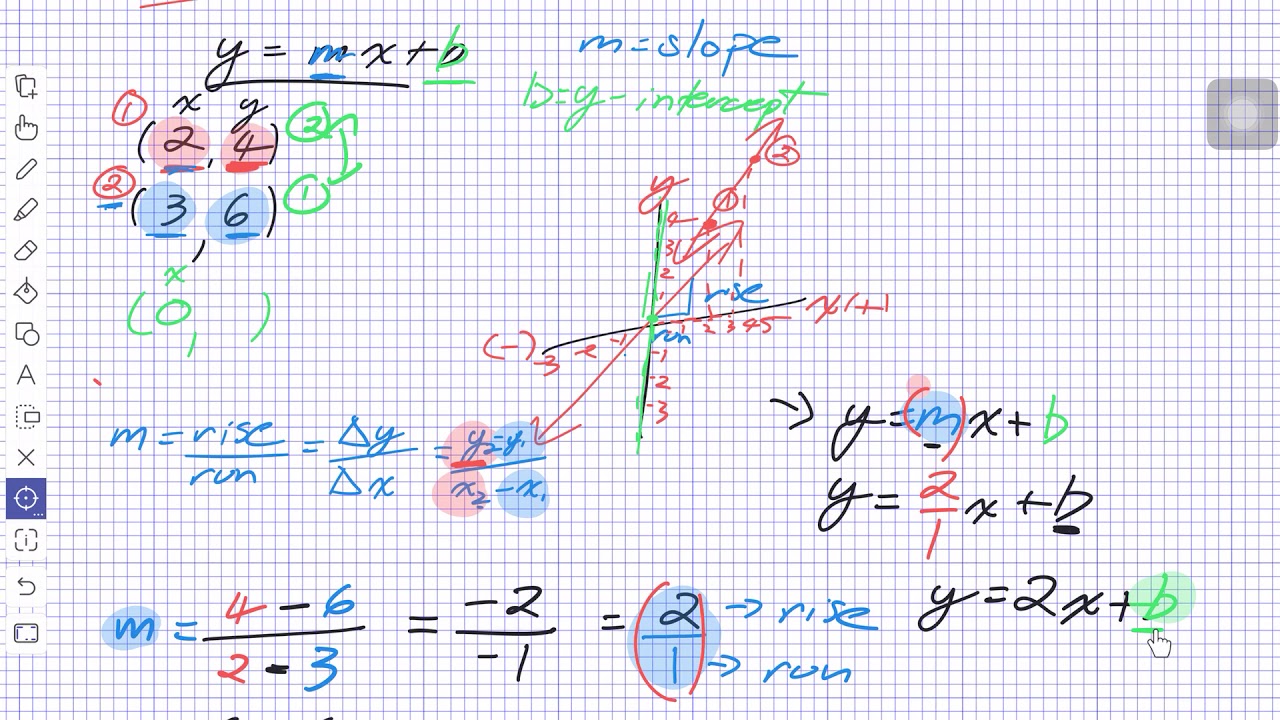 y = mx + b
m = slope
b = y - intercept
① x y
(2, 4) ②
② (3, 6) ①
x
(0, )
y
②
①
4
3
2
1
rise
run
1 2 3 4 5
x (+)
(-) -3 -2 -1
-1
-2
-3
m = rise/run = Δy/Δx = y₂-y₁/x₂-x₁
→ y = (m)x + b
y = 2/1 x + b
y = 2x + b
m = 4 - 6 / 2 - 3 = -2/-1 = (2/1) → rise → run